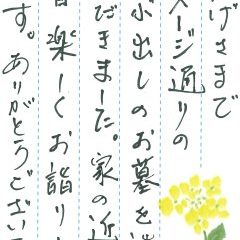 げさまで
ページ通りの
小出しのお墓を
だきました。家の近
楽しくお詣り
す。ありがとうござい